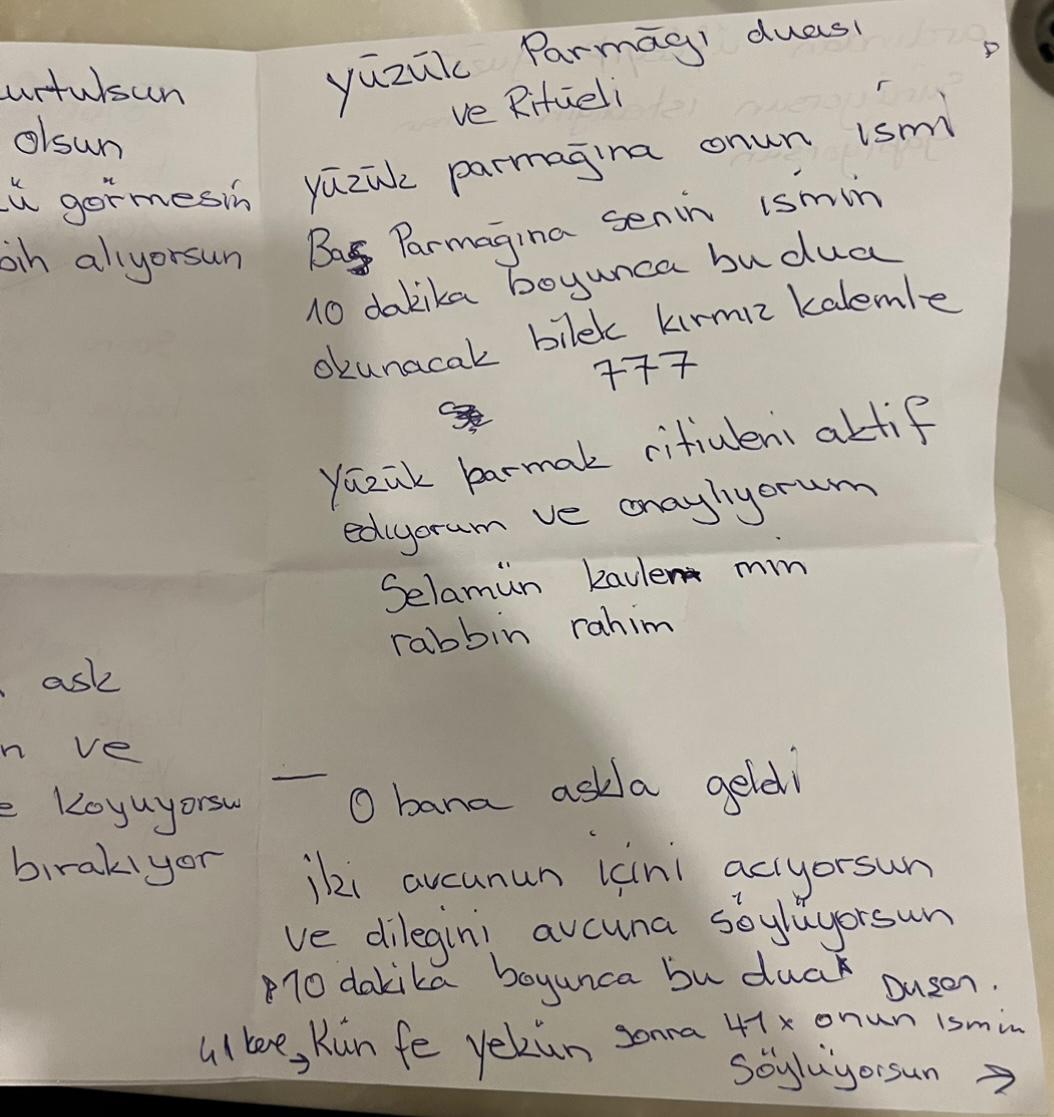 urtulsun
olsun
ü görmesin
bih alıyorsun
ask
n ve
e koyuyorsu
bırakıyor
yüzük Parmağı duası
ve Ritüeli
yüzük parmağına onun ismi
Baş Parmağına senin ismin
10 dakika boyunca bu dua
okunacak bilek kırmız kalemle
777
yüzük parmak ritiuleni aktif
ediyorum ve onaylıyorum
Selamün kavlen min
rabbin rahim
— O bana askla geldi
iki avcunun içini acıyorsun
ve dilegini avcuna söylüyorsun
10 dakika boyunca bu dua
41 kere, Kün fe yekün sonra 41x onun ismin
söylüyorsun →